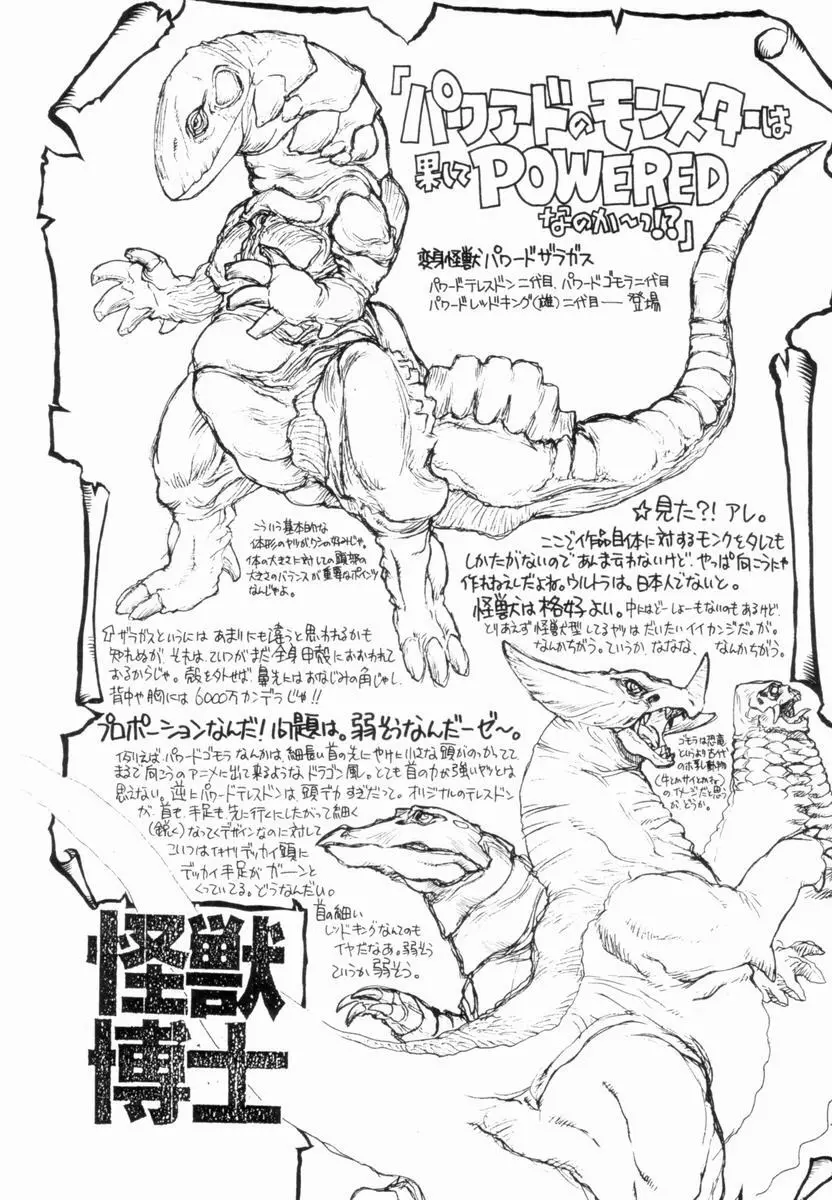 「パワアドのモンスターは
果して POWERED
なのか〜っ!?」
変身怪獣パワードザラガス
パワードテレスドン二代目、パワードゴモラ二代目
パワードレッドキング(雄)二代目── 登場
こういう基本的な
体形のヤツがワシの好みじゃ。
体の大きさに対しての頭部の
大きさのバランスが重要なポインツ
なんじゃよ。
☆見た?! アレ。
ここで作品自体に対するモンクをタレても
しかたがないのであんま言わないけど、やっぱ向こうにゃ
作れねえんだよね。ウルトラは。日本人でないと。
怪獣は格好よい。中にはどーしょーもないのもあるけど、
とりあえず怪獣型してるヤツはだいたいイイカンジだ。が。
なんかちがう。ていうか、ななな、なんかちがう。
ザラガスというにはあまりにも違うと思われるかも
知れぬが、それは、こいつがまだ全身甲殻におおわれて
おるからじゃ。殻を外せば、鼻先にはおなじみの角じゃし、
背中や胸には6000万カンデラじゃ!!
プロポーションなんだ!問題は。弱そうなんだーゼ〜。
例えば、パワードゴモラなんかは、細長い首の先にやけに小さな頭がのっかてて
まるで向こうのアニメに出て来るようなドラゴン風。とても首の力が強いヤツとは
思えない。逆にパワードテレスドンは、頭デカすぎだって。オリジナルのテレスドン
が、首も、手足も、先に行くにしたがって細く
(鋭く)なってくデザインなのに対して
こいつはデッカイ頭に
デッカイ手足がガーンと
くっついてる。どうなんだい。
ゴモラは恐竜
というより古代
のホ乳動物
(牛とかサイとかね)
のイメージだと思う
が、どうか。
首の細い
レッドキングなんてのも
イヤだなあ。弱そう
ていうか弱そう。
怪獣
博士